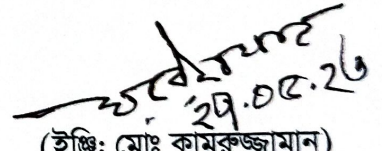 ২৭.০৫.২৬
(ইঞ্জি: মোঃ কামরুজ্জামান)